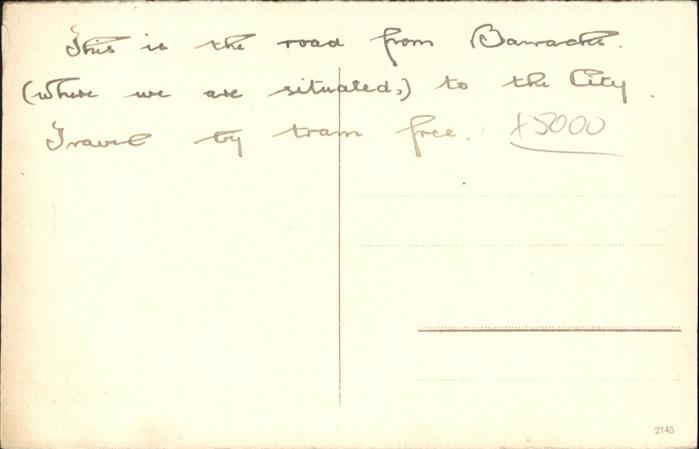 This is the road from Barracks.
(where we are situated,) to the City.
Travel by tram free. £5000
2145